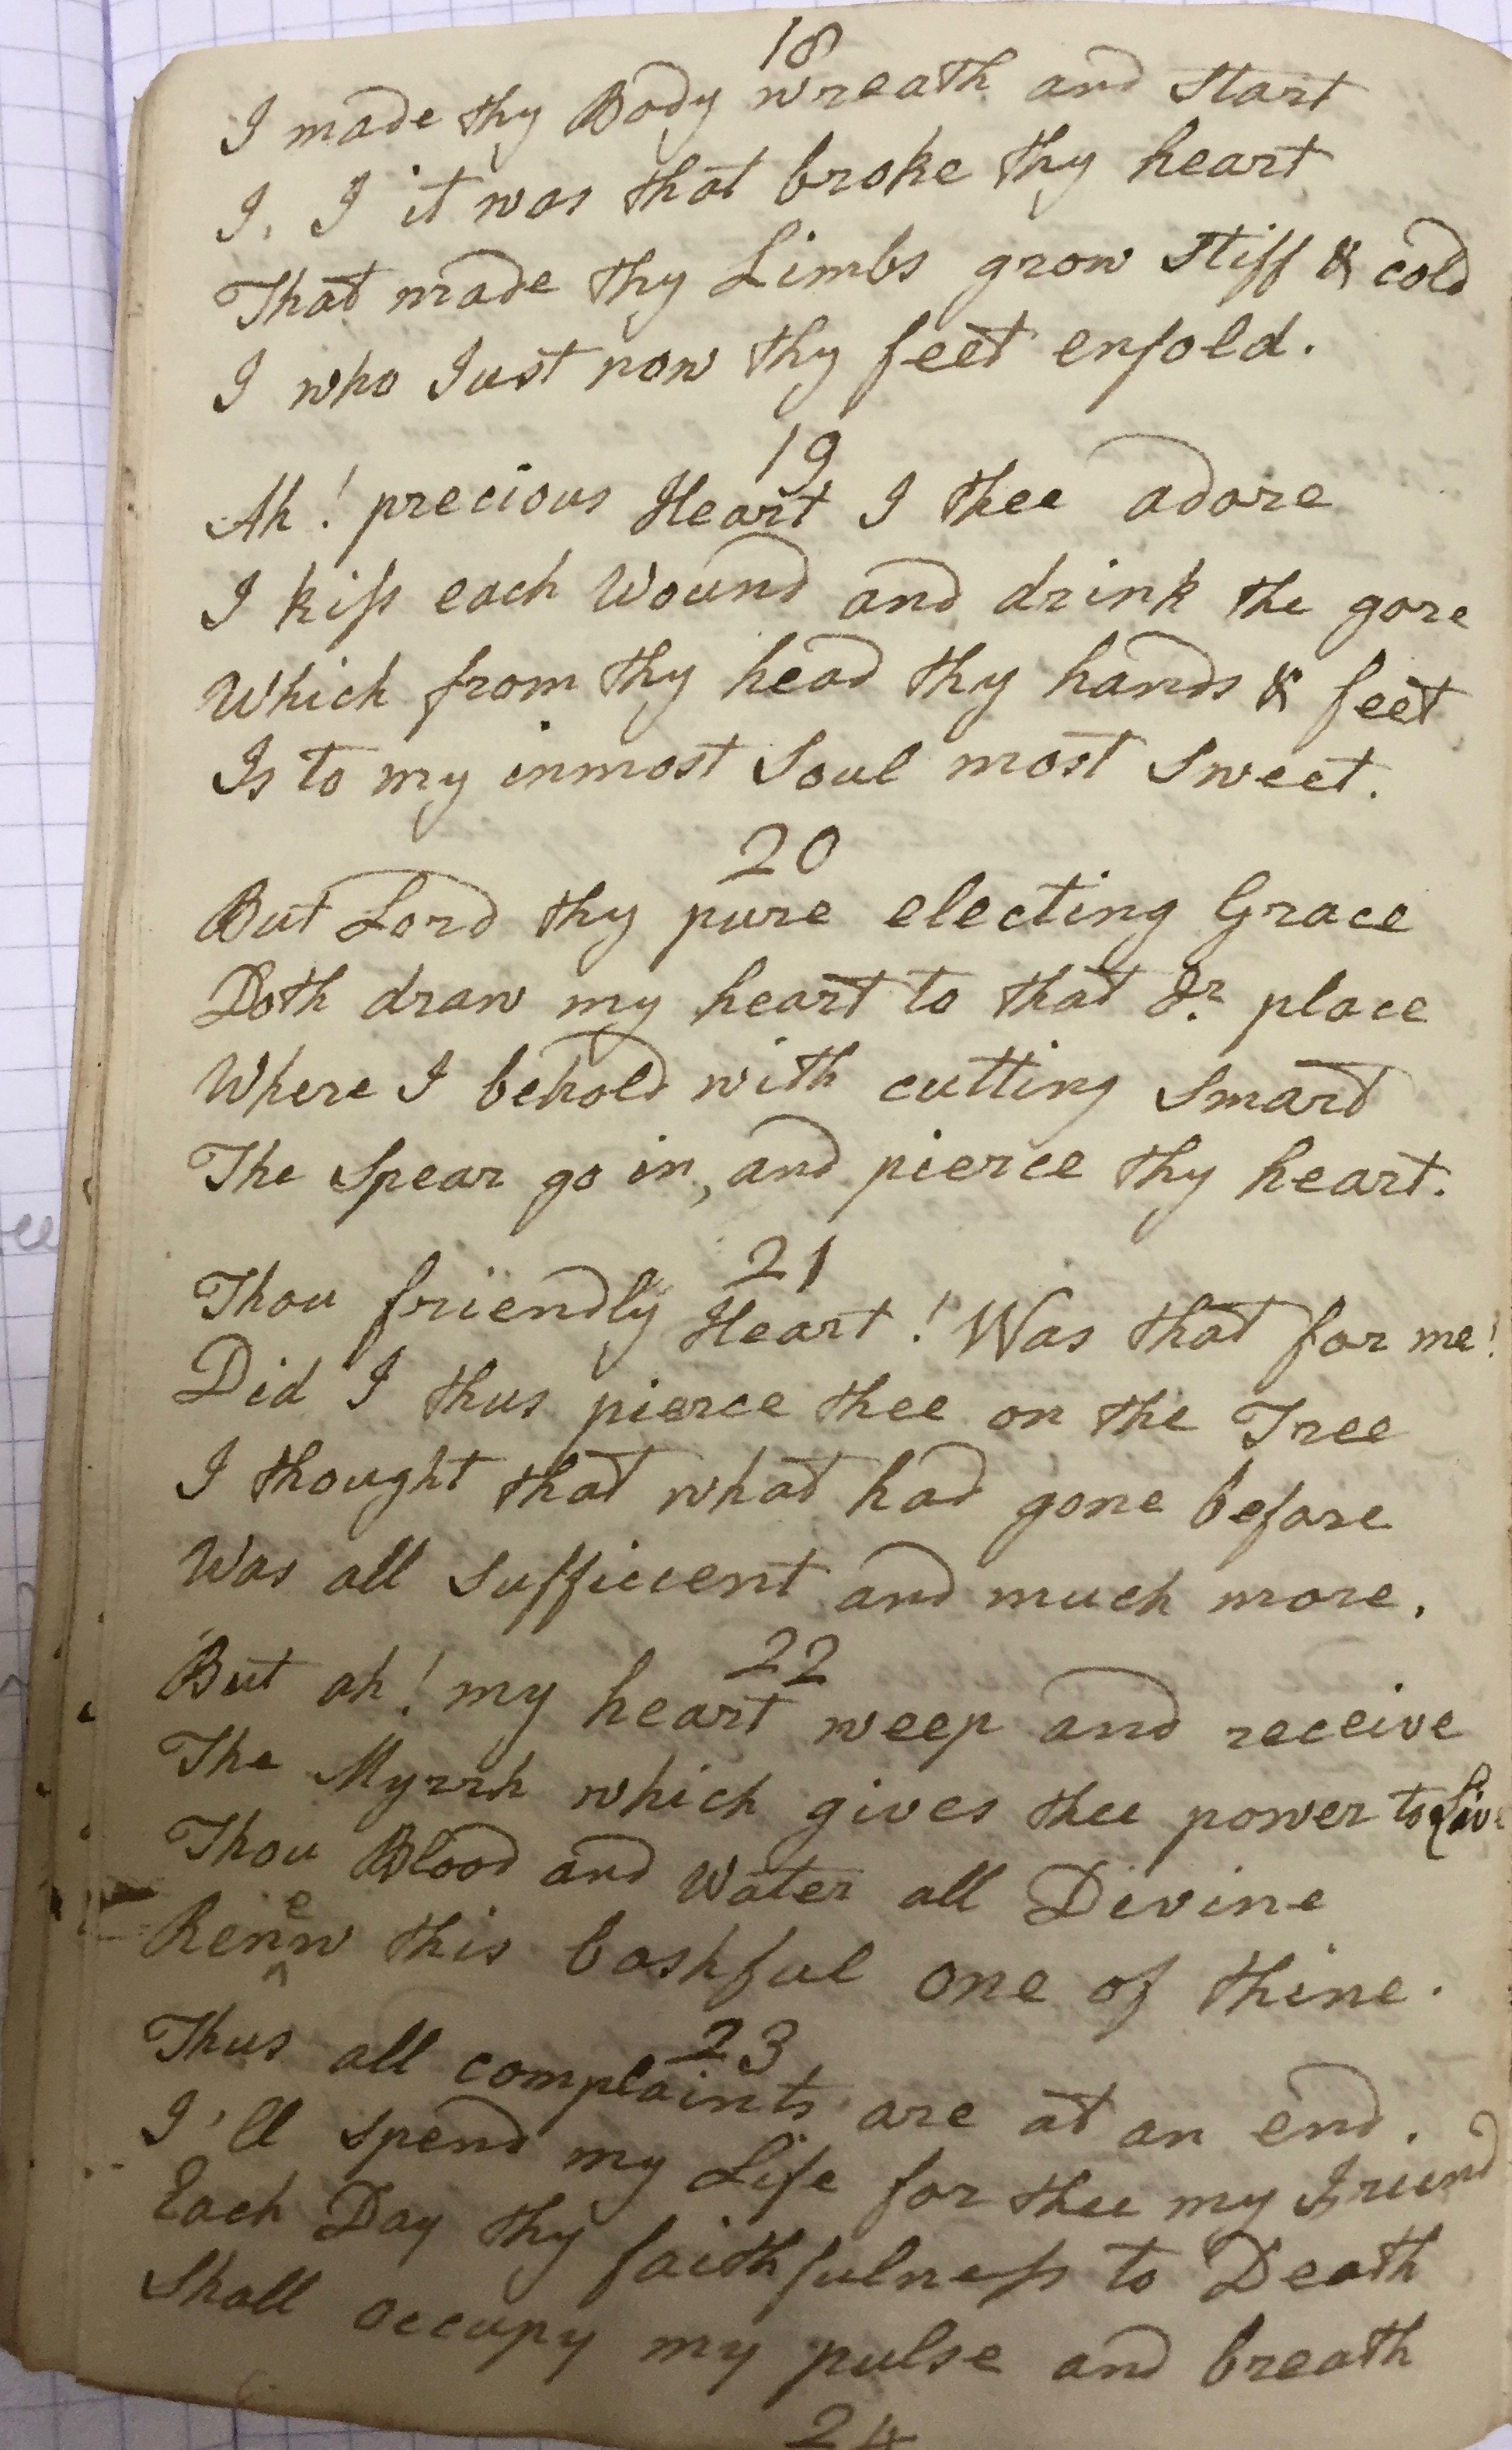 18
I made thy Body wreath and start
I, I it was that broke thy heart
That made thy Limbs grow stiff & cold
I who Just now thy feet enfold.
19
Ah! precious Heart I thee adore
I kiſs each Wound and drink the gore
Which from thy head thy hands & feet
Is to my inmost Soul most Sweet.
20
But Lord thy pure electing Grace
Doth draw my heart to that Dr. place
Where I behold with cutting Smart
The Spear go in, and pierce thy heart.
21
Thou friendly Heart! Was that for me!
Did I thus pierce thee on the Tree
I thought that what had gone before
Was all Sufficient and much more.
22
But ah! my heart weep and receive
The Myrrh which gives thee power to Live
Thou Blood and Water all Divine
Renew this bashful one of thine.
23
Thus all complaints are at an end.
I'll spend my Life for thee my Friend
Each Day thy faithfulneſs to Death
Shall occupy my pulse and breath
24